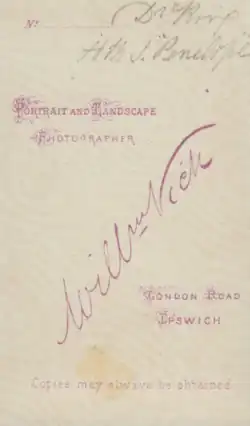 No. Dr King
H.M.S. Penelope
PORTRAIT AND LANDSCAPE
PHOTOGRAPHER
Willm Vick
LONDON ROAD
IPSWICH
Copies may always be obtained